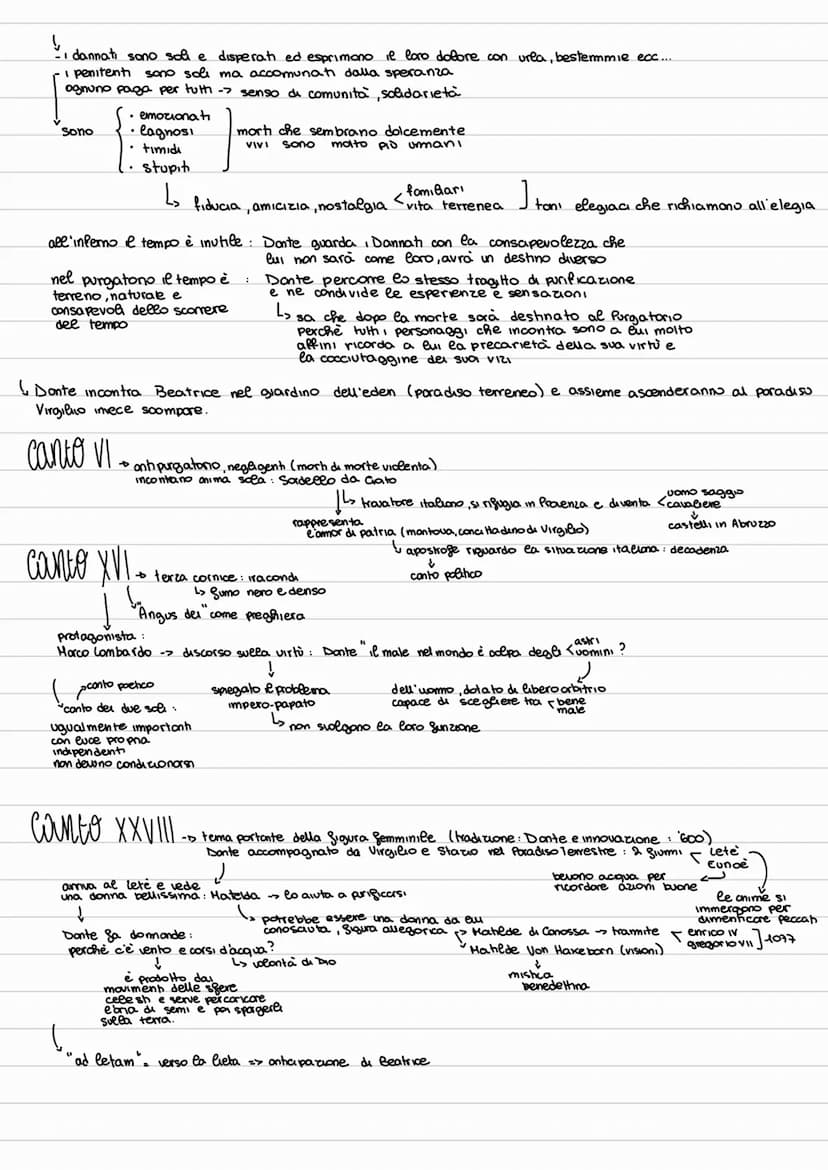 - i dannati sono soli e disperati ed esprimono il loro dolore con urla, bestemmie ecc...
- i penitenti sono soli ma accomunati dalla speranza
ognuno paga per tutti -> senso di comunità, solidarietà
sono
· emozionati
· lagnosi
· timidi
· stupiti
morti che sembrano dolcemente
vivi sono molto più umani
fiducia, amicizia, nostalgia < familiari
vita terrenea
] toni elegiaci che richiamano all'elegia
all'inferno il tempo è inutile : Dante guarda i Dannati con la consapevolezza che
lui non sarà come loro, avrà un destino diverso
nel purgatorio il tempo è : Dante percorre lo stesso tragitto di purificazione
terreno, naturale e
e ne condivide le esperienze e sensazioni
consapevoli dello scorrere
del tempo
sa che dopo la morte sarà destinato al Purgatorio
perché tutti i personaggi che incontra sono a lui molto
affini ricorda a lui la precarietà della sua virtù e
la cocciutaggine dei suoi vizi
Dante incontra Beatrice nel giardino dell'eden (paradiso terreneo) e assieme ascenderanno al paradiso
Virgilio invece scompare.
canto VI -> antipurgatorio, negligenti (morti di morte violenta)
incontrano anima sola : Sordello da Goito
trovatore italiano, si rifugia in Provenza e diventa < uomo saggio
cavaliere
castelli in Abruzzo
rappresenta
l'amor di patria (mantova, concittadino di Virgilio)
apostrofe riguardo la situazione italiana : decadenza
canto politico
canto XVI -> terza cornice : iracondi
fumo nero e denso
"Angus dei" come preghiera
protagonista :
Marco Lombardo -> discorso sulla virtù : Dante "il male nel mondo è colpa degli < astri
uomini ?
canto poetico
canto dei due soli :
ugualmente importanti
con luce propria
indipendenti
non devono condizionarsi
spiegato il problema
impero-papato
non svolgono la loro funzione
dell'uomo, dotato di libero arbitrio
capace di scegliere tra < bene
male
canto XXVIII -> tema portante della figura femminile (tradizione : Dante e innovazione : '600)
Dante accompagnato da Virgilio e Stazio nel Paradiso Terrestre : 2 fiumi < Letè
Eunoè
bevono acqua per
ricordare azioni buone
le anime si
immergono per
dimenticare peccati
arriva al letè e vede
una donna bellissima : Matelda -> lo aiuta a purificarsi
potrebbe essere una donna da lui
conosciuta, figura allegorica
Matilde di Canossa -> tramite < enrico IV
gregorio VII ] 1077
Matilde Von Hakeborn (visioni)
mistica
benedettina
Dante fa domande :
perché c'è vento e corsi d'acqua?
volontà di Dio
è prodotto dai
movimenti delle sfere
celesti e serve per caricare
l'aria di semi e poi spargerli
sulla terra.
"ad letam" = verso la lieta => anticipazione di Beatrice